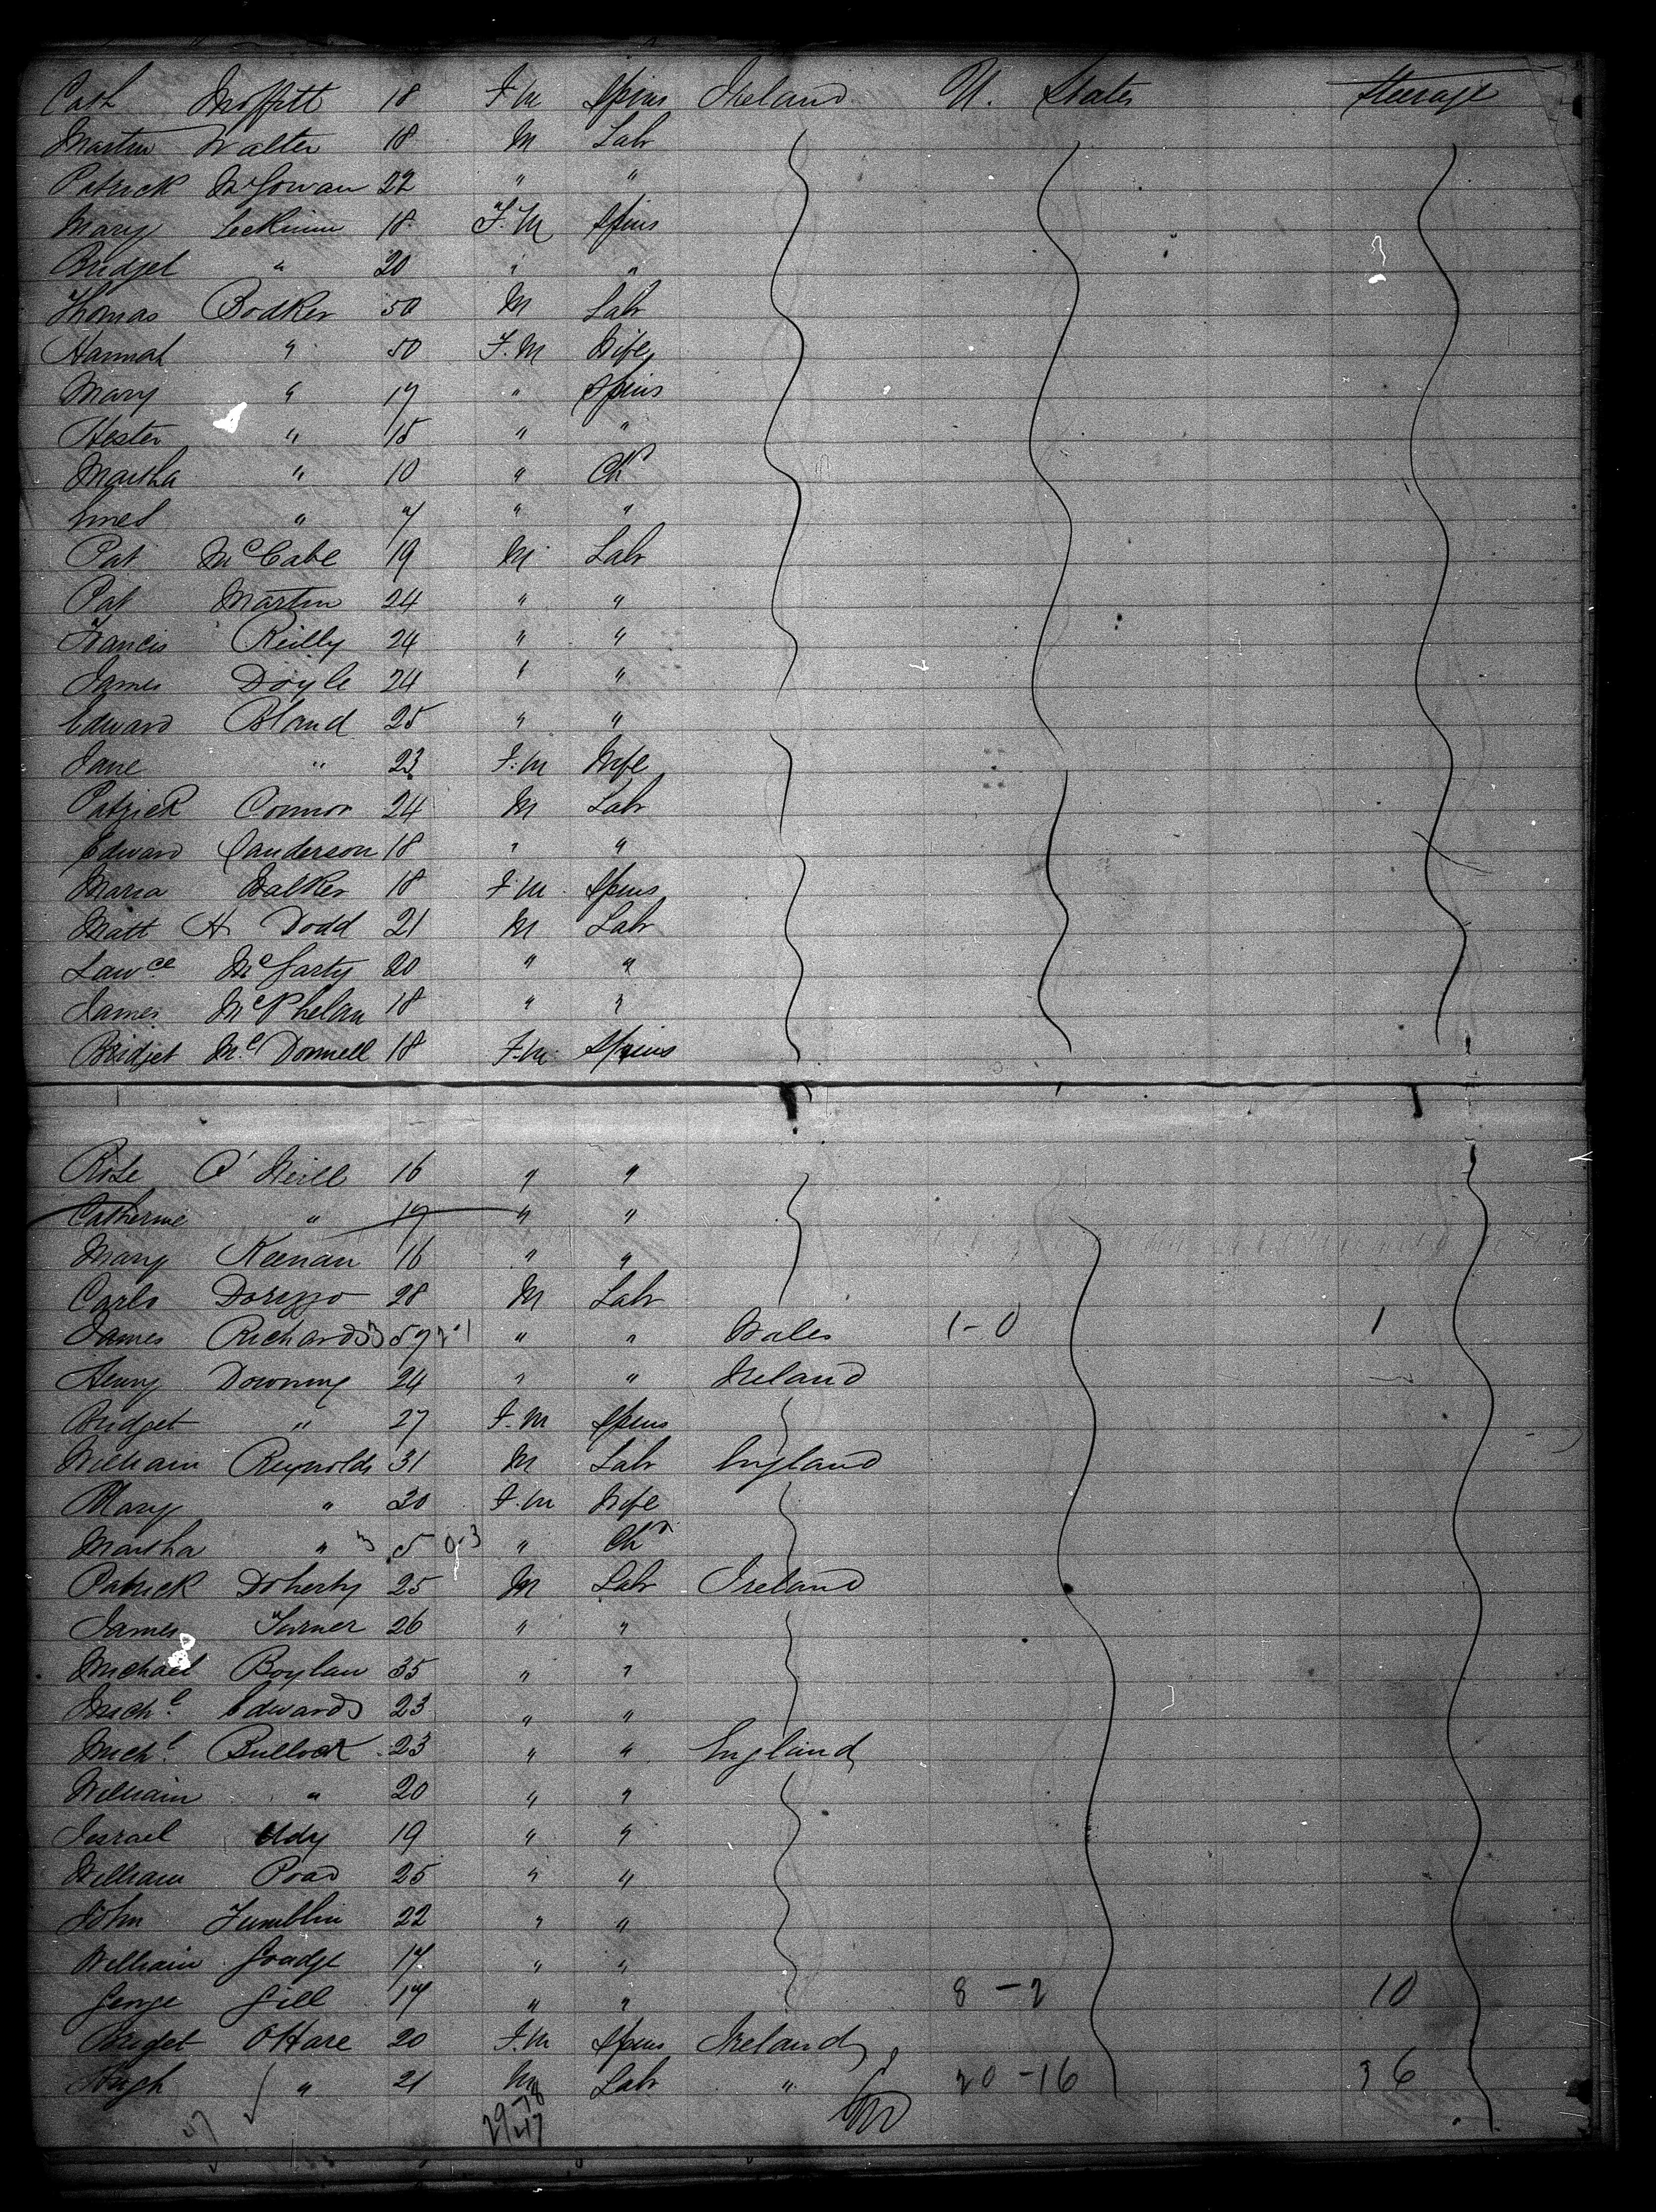 Cath Moffitt 18 F.M Spins Ireland U. States Steerage
Martin Walter 18 M Labr
Patrick McGowan 22 " "
Mary 18 F.M Spins
Bridget " 20 " "
Thomas Bodker 50 M Labr
Hannah " 50 F.M Wife
Mary " 17 " Spins
Hester " 15 " "
Martha " 10 " Chd
" 7 " "
Pat McCabe 19 M Labr
Pat Martin 24 " "
Francis Reilly 24 " "
James Doyle 24 " "
Edward Bland 25 " "
Jane " 23 F.M Wife
Patrick Connor 24 M Labr
Edward Canderson 18 " "
Maria Walker 18 F.M Spins
Matt H Dodd 21 M Labr
Lawce McGarty 20 " "
James McPhelan 18 " "
Bridget McDonnell 18 F.M. Spins
Rose O'Neill 16 " "
Catherine " 17 " "
Mary Keenan 16 " "
Carlo 28 M Labr
James Richards 57 " " Wales 1-0 1
Henry Downing 24 " " Ireland
Bridget " 27 F.M Spins
William Reynolds 31 M Labr England
Mary " 30 F.M Wife
Martha " 5 " Chd
Patrick Doherty 25 M Labr Ireland
James Turner 26 " "
Michael Boylan 35 " "
Michl Edwards 23 " "
Michl Bullock 23 " " England
William " 20 " "
Israel Udy 19 " "
William Poad 25 " "
John Tumblin 22 " "
William Goadge 17 " "
George Gill 17 " " 8-2 10
Bridget O'Hare 20 F.M Spins Ireland
Hugh " 21 M Labr " 20-16 36